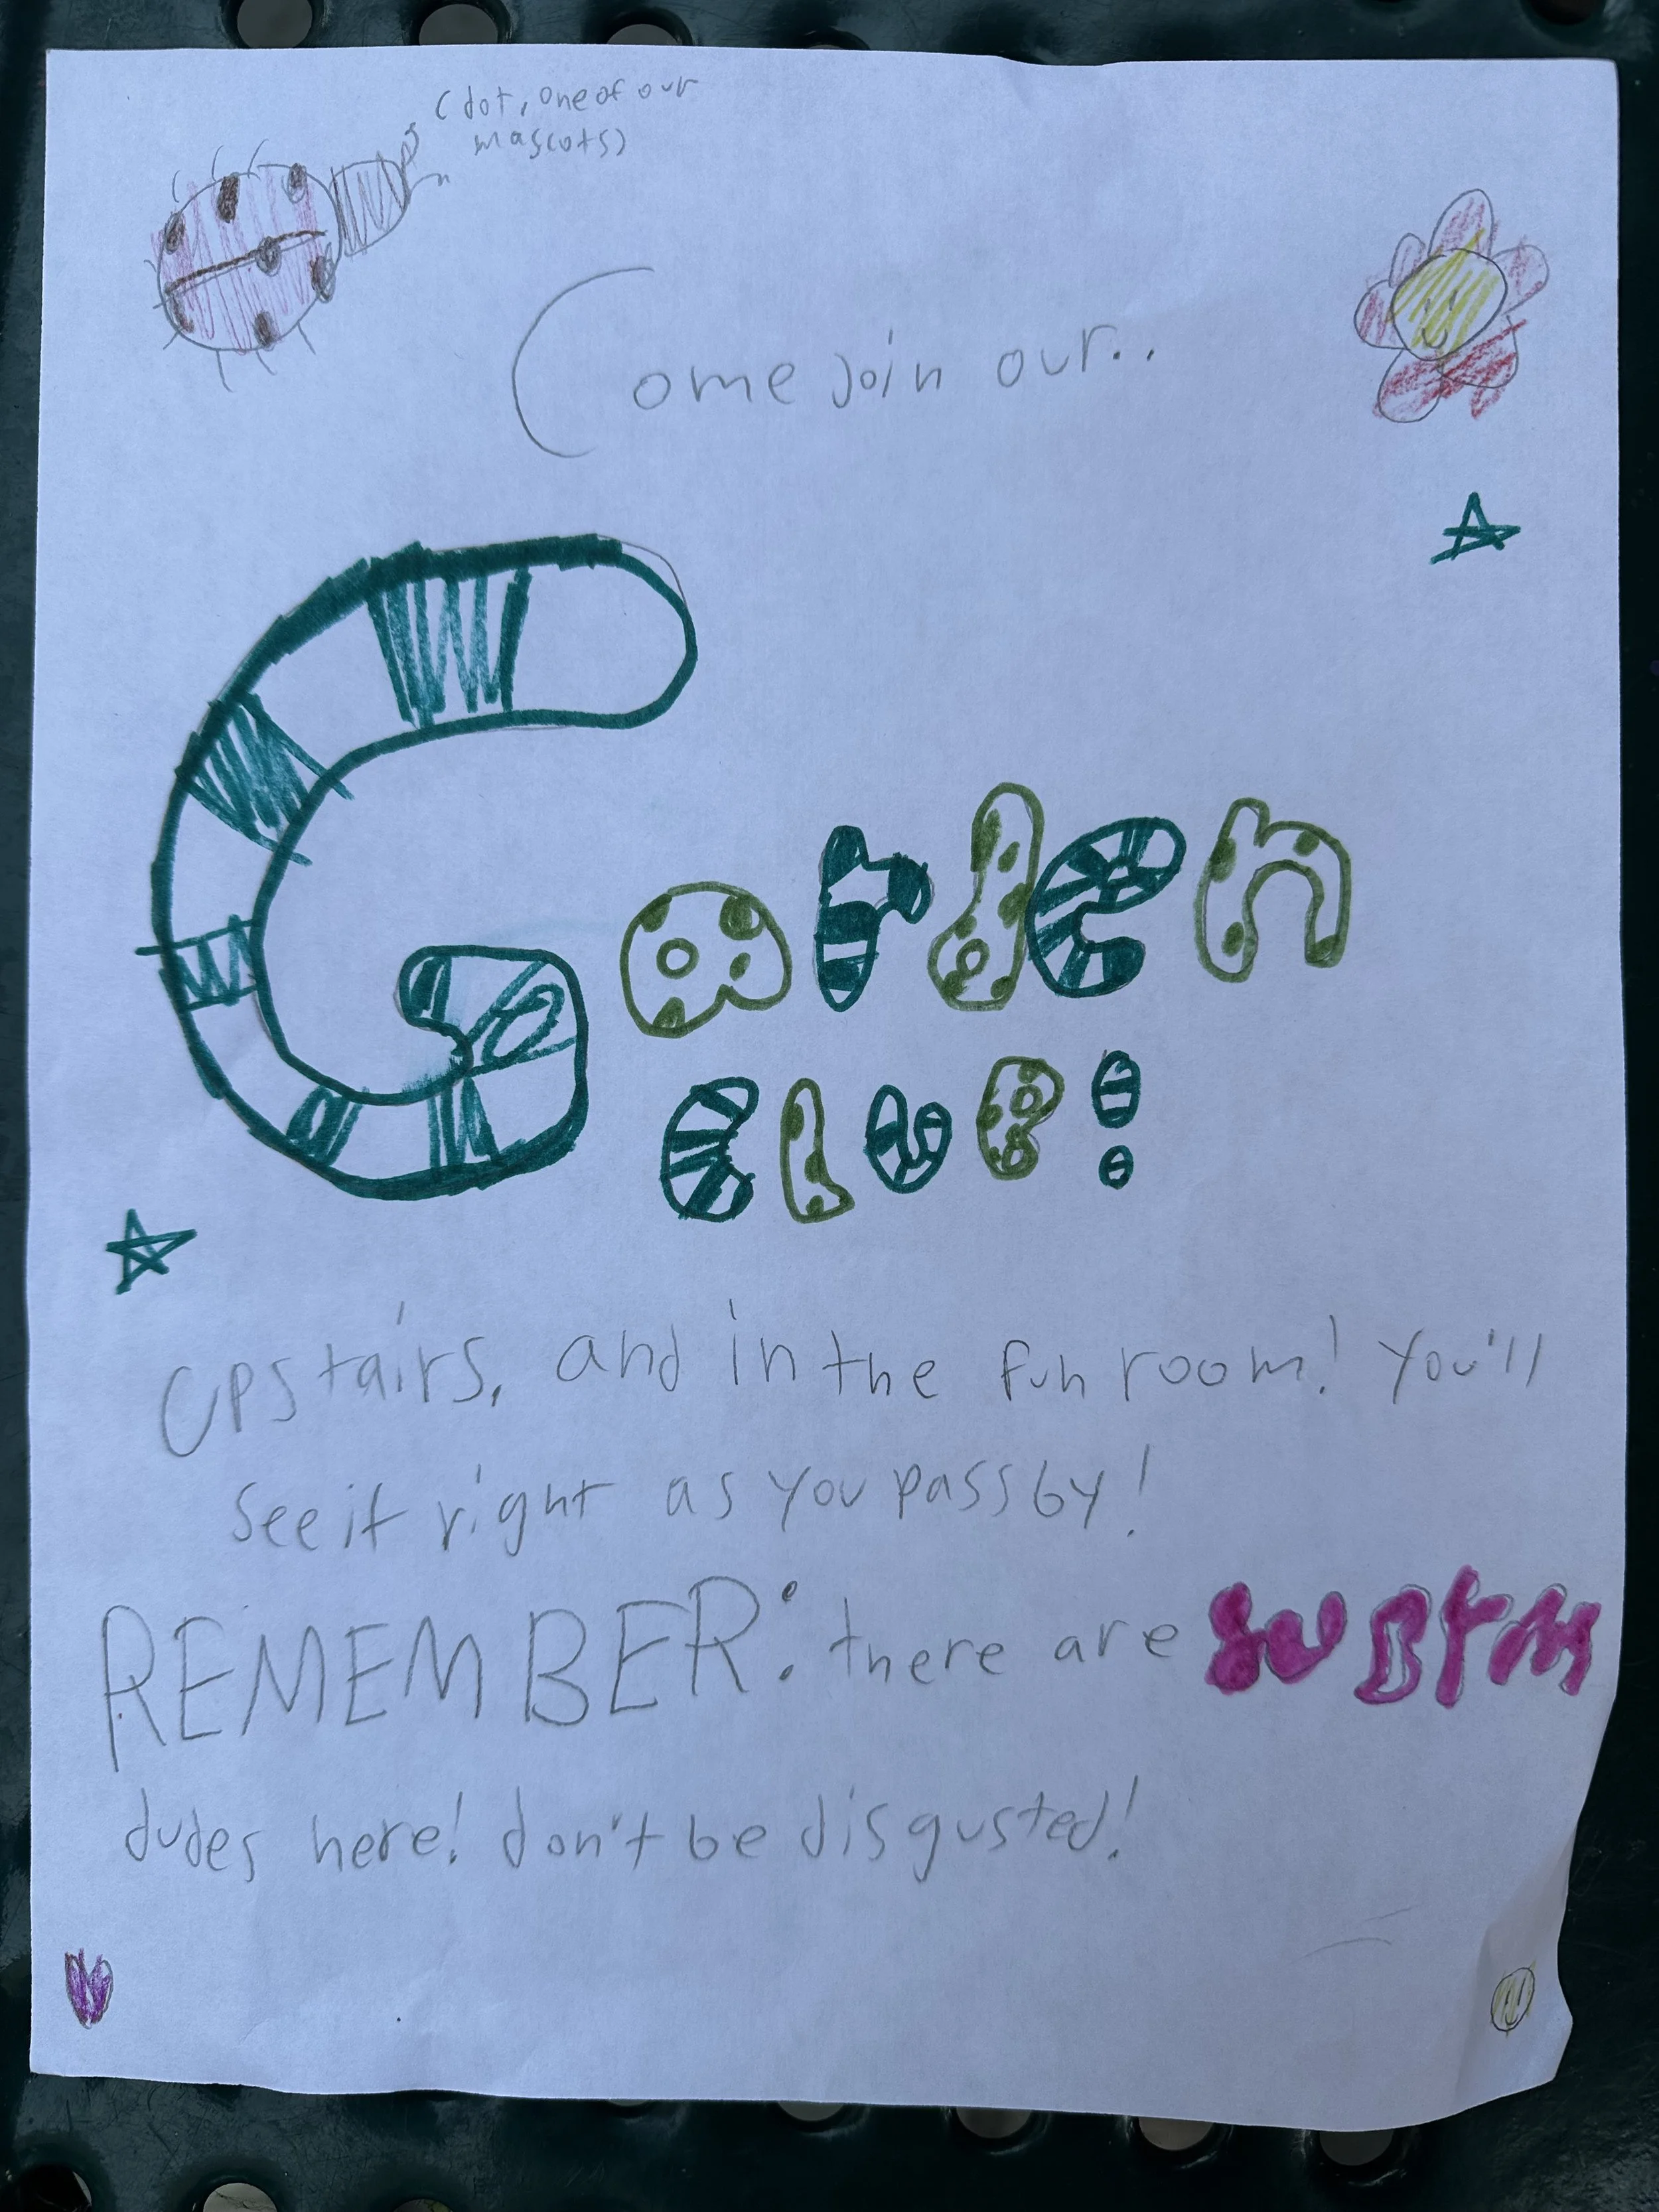 (dot, one of our
mascots)
Come join our..
Garden
club!
Upstairs, and in the fun room! You'll
see it right as you pass by!
REMEMBER: there are
dudes here! don't be disgusted!